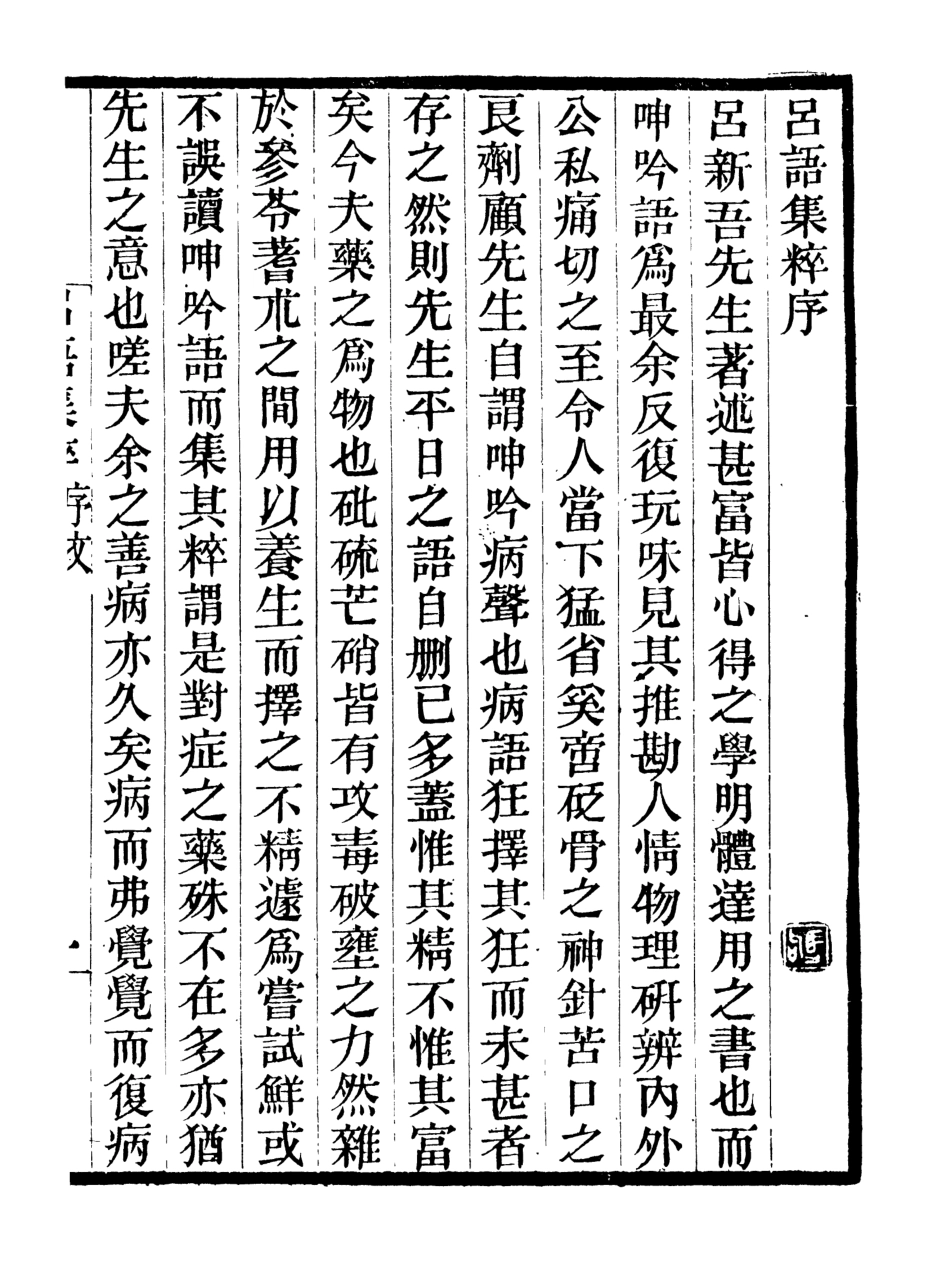 呂語集粹序
呂新吾先生著述甚富皆心得之學明體達用之書也而
呻吟語爲最余反復玩味見其推勘人情物理硏辨內外
公私痛切之至令人當下猛省奚啻砭骨之神針苦口之
良劑顧先生自謂呻吟病聲也病語狂擇其狂而未甚者
存之然則先生平日之語自刪已多蓋惟其精不惟其富
矣今夫藥之爲物也砒硫芒硝皆有攻毒破壅之力然雜
於參苓耆朮之間用以養生而擇之不精遽爲嘗試鮮或
不誤讀呻吟語而集其粹謂是對症之藥殊不在多亦猶
先生之意也嗟夫余之善病亦久矣病而弗覺覺而復病
呂語集粹 序文 一